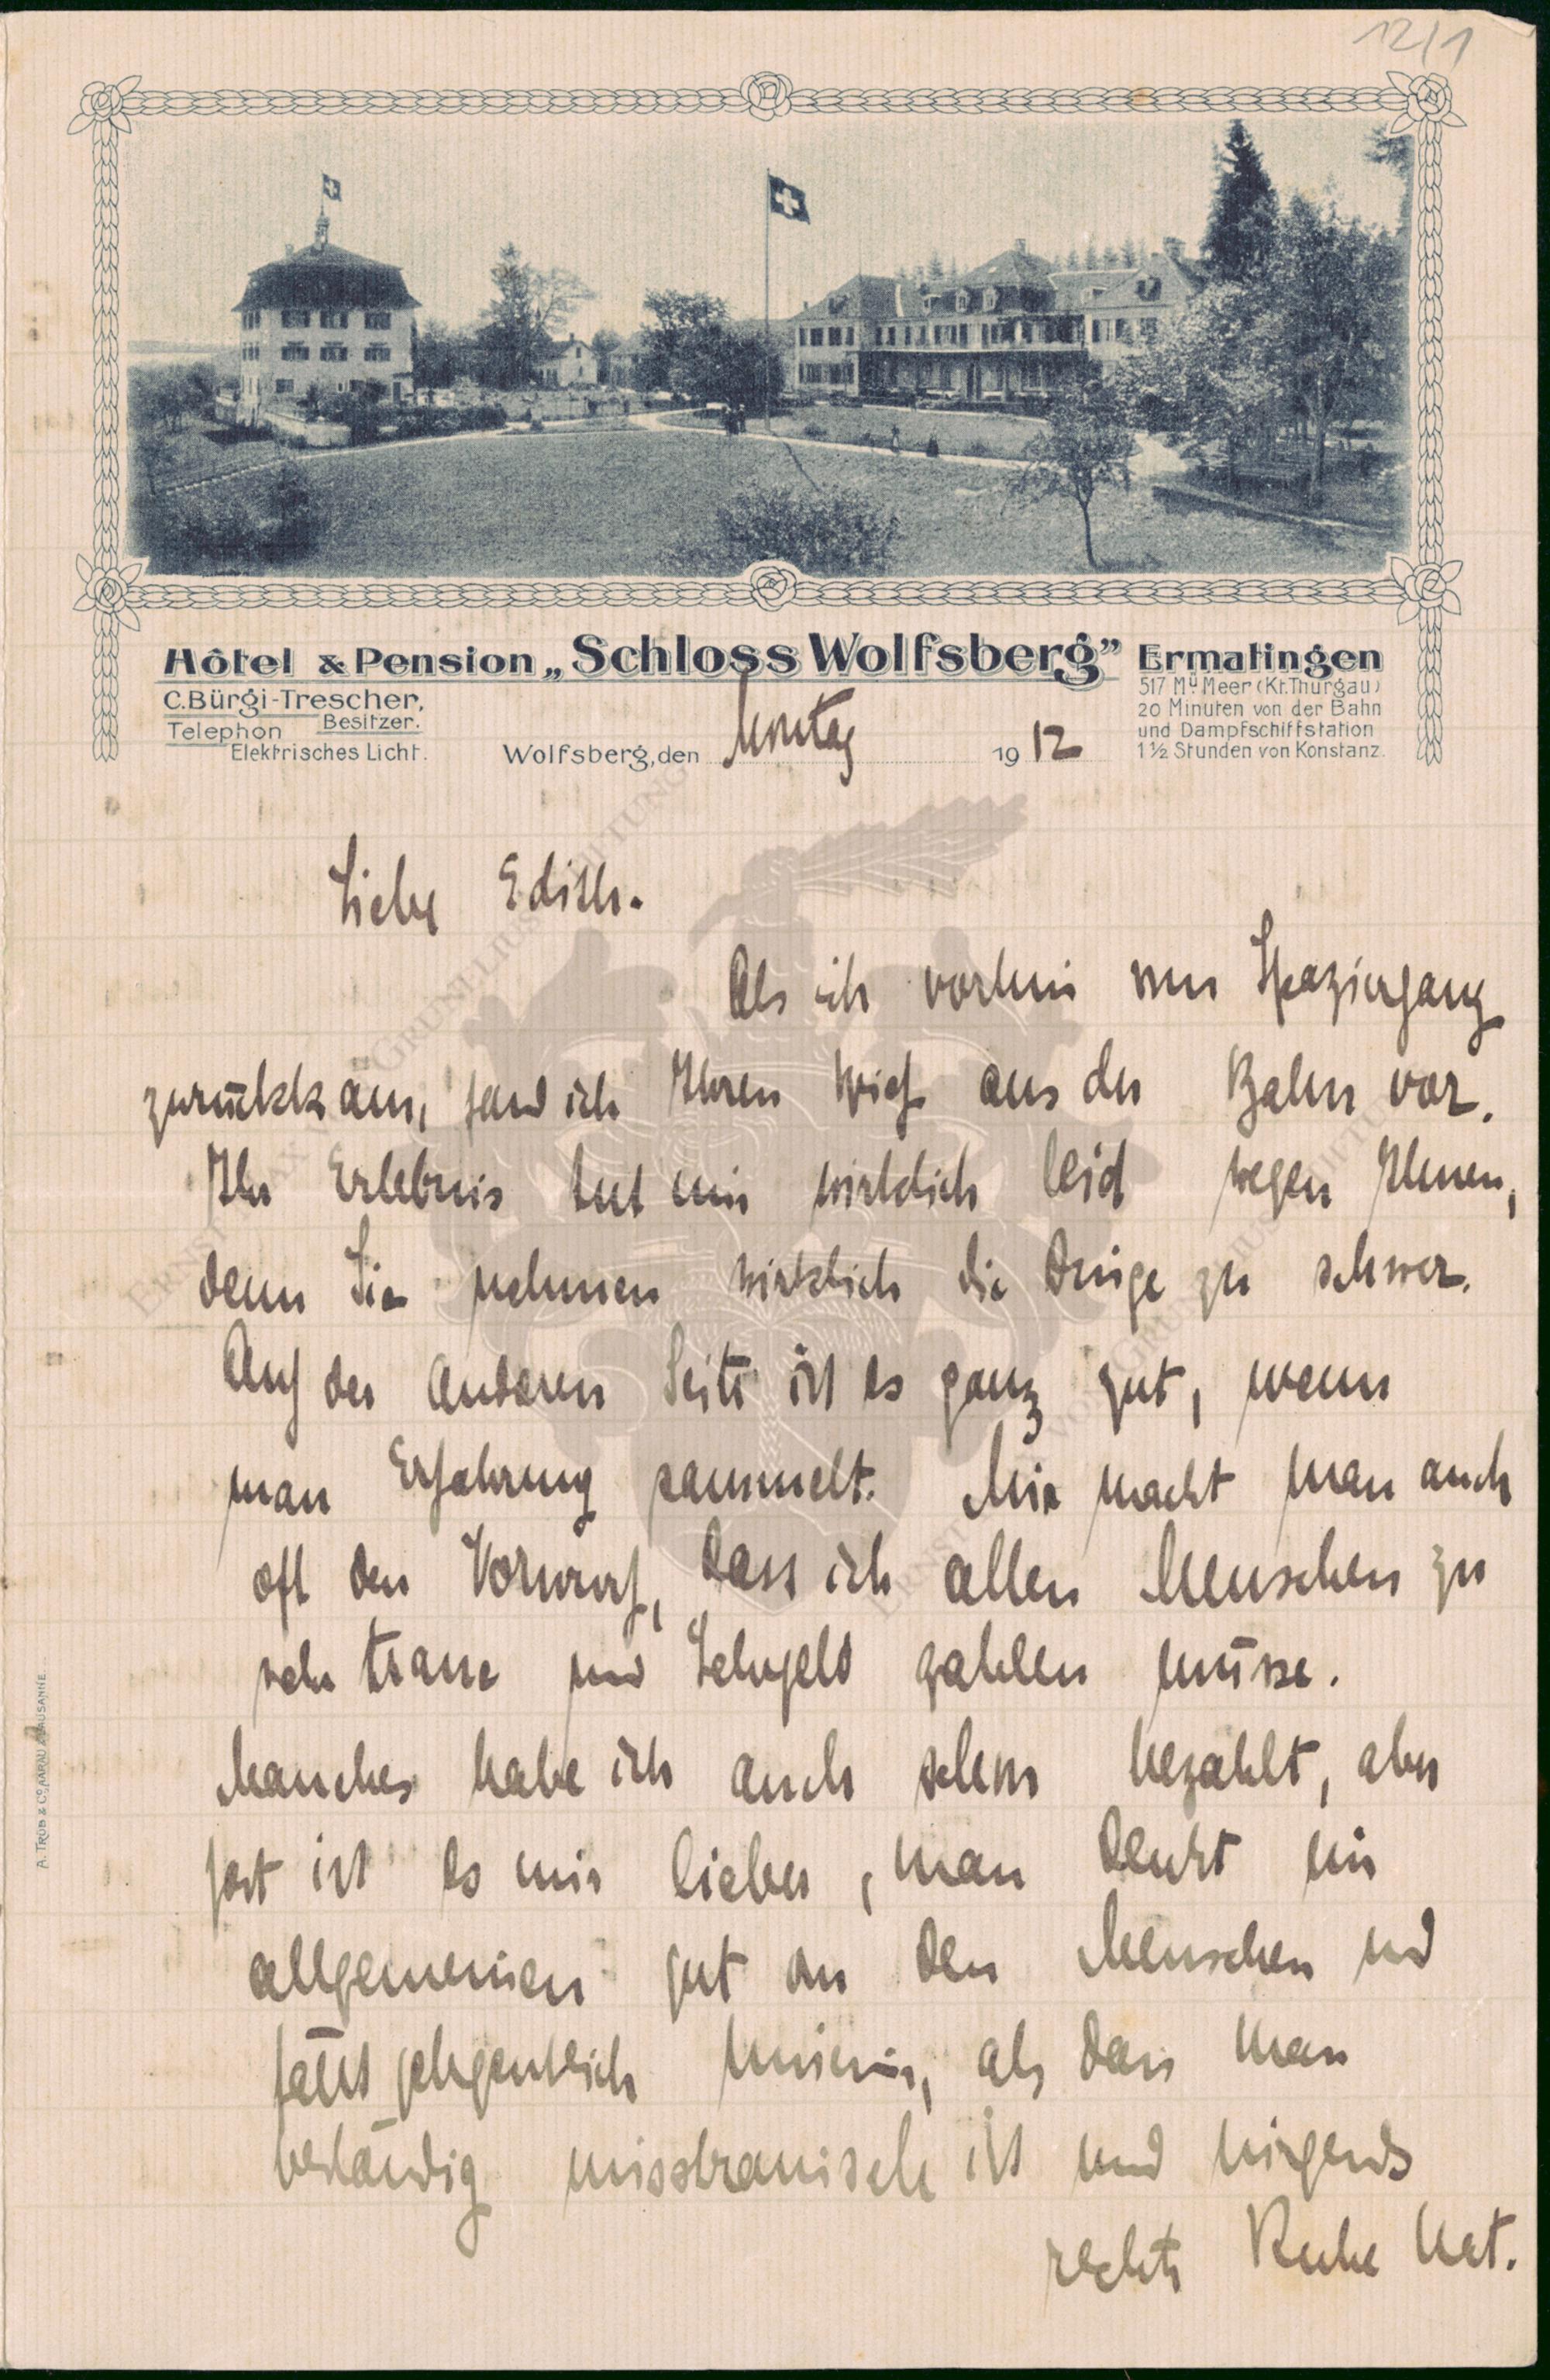 12/1
Hôtel & Pension „Schloss Wolfsberg” Ermatingen
C. Bürgi-Trescher,
Besitzer.
Telephon
Elektrisches Licht.
517 M ü Meer (Kt. Thurgau)
20 Minuten von der Bahn
und Dampfschiffstation
1 ½ Stunden von Konstanz.
Wolfsberg, den Montag 1912
Liebe Edith.
Als ich vorhin vom Spaziergang
zurückkam, fand ich Ihren Brief aus der Bahn vor.
Ihr Erlebnis tut mir wirklich leid wegen Ihnen,
denn Sie nehmen wirklich die Dinge zu schwer.
Auf der anderen Seite ist es ganz gut, wenn
man Erfahrung sammelt. Mir macht man auch
oft den Vorwurf, dass ich allen Menschen zu
sehr traue und Lehrgeld zahlen müsse.
Manches habe ich auch schon bezahlt, aber
fast ist es mir lieber, man denkt im
allgemeinen gut von den Menschen und
fällt gelegentlich hinein, als dass man
beständig misstrauisch ist und nirgends
rechte Ruhe hat.
A. TRÜB & Cº, AARAU & LAUSANNE
ERNST MAX VON GRUNELIUS STIFTUNG
ERNST MAX VON GRUNELIUS STIFTUNG